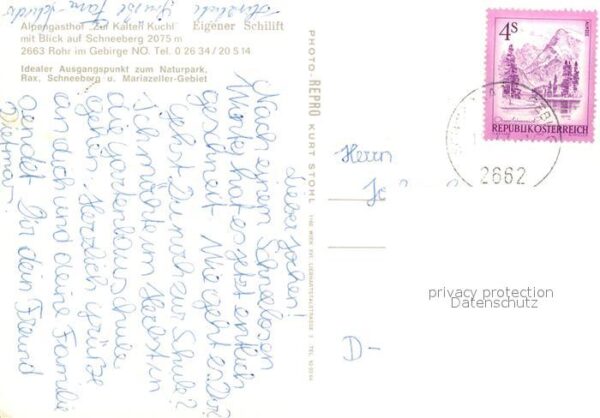 Herzliche Grüße Fam.
Alpengasthof "Zur Kalten Kuchl" Eigener Schilift
mit Blick auf Schneeberg 2075 m
2663 Rohr im Gebirge NÖ. Tel. 0 26 34 / 20 5 14
Idealer Ausgangspunkt zum Naturpark,
Rax, Schneeberg u. Mariazeller-Gebiet
PHOTO-REPRO KURT STOHL
4S
REPUBLIK ÖSTERREICH
2662
Lieber Jochen!
Nach einem Schneelosen
Winter hat es jetzt entlich
geschneit. Wie geht es Dir
gehst Du noch zur Schule?
Ich möchte im Herbst in
die Gartenbauschule
gehen. Herzlich grüße
an dich und deine Familie
sendet Dir dein Freund
Dietmar
Herrn
Je
D-
privacy protection
Datenschutz